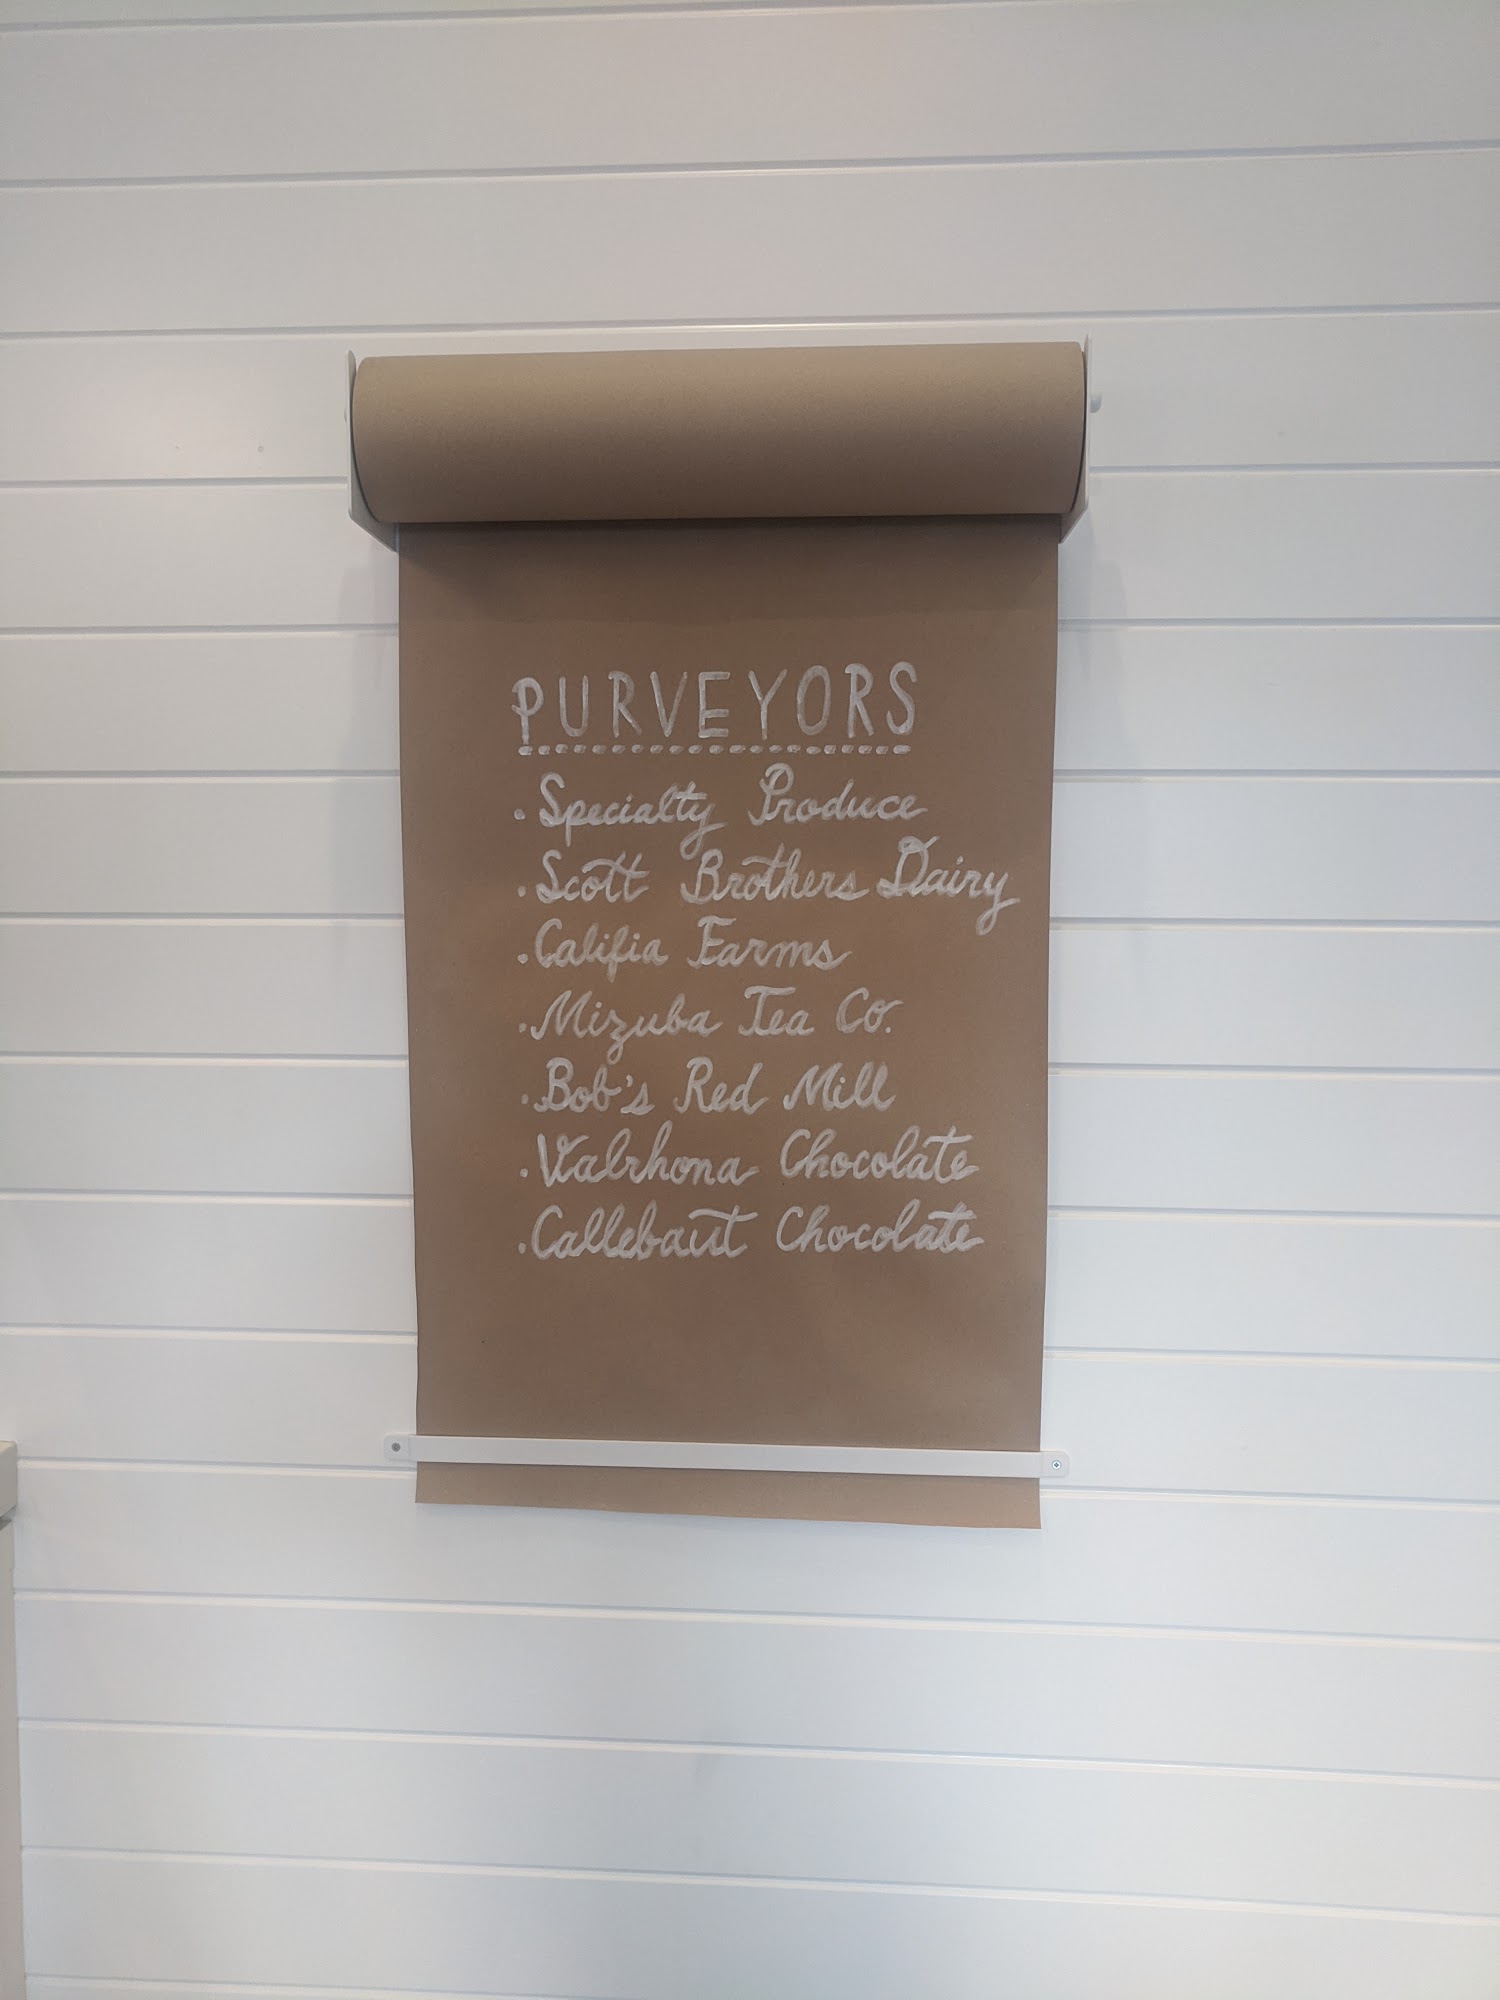 PURVEYORS
· Specialty Produce
· Scott Brothers Dairy
· Califia Farms
· Mizuba Tea Co.
· Bob's Red Mill
· Valrhona Chocolate
· Callebaut Chocolate